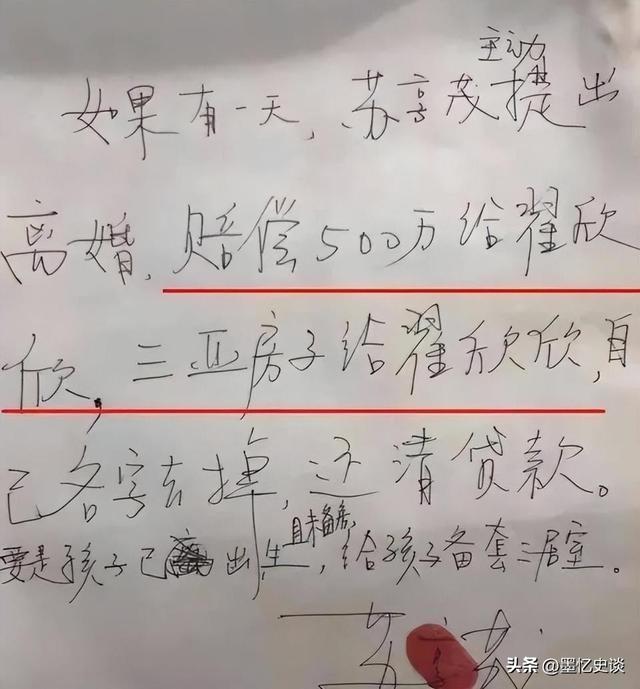 主动
如果有一天，苏享茂提出
离婚，赔偿500万给翟欣
欣，三亚房子给翟欣欣，自
己名字去掉，还清贷款。
且未备房，
要是孩子已出生，给孩子备套三居室。
苏享茂
头条@墨忆史谈